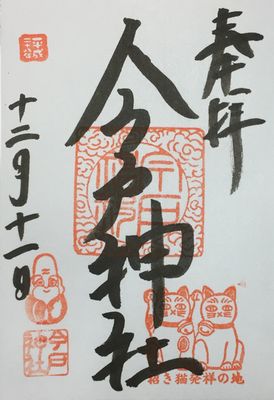 奉拝
今戸神社
十二月十一日
今戸
神社
招き猫発祥の地